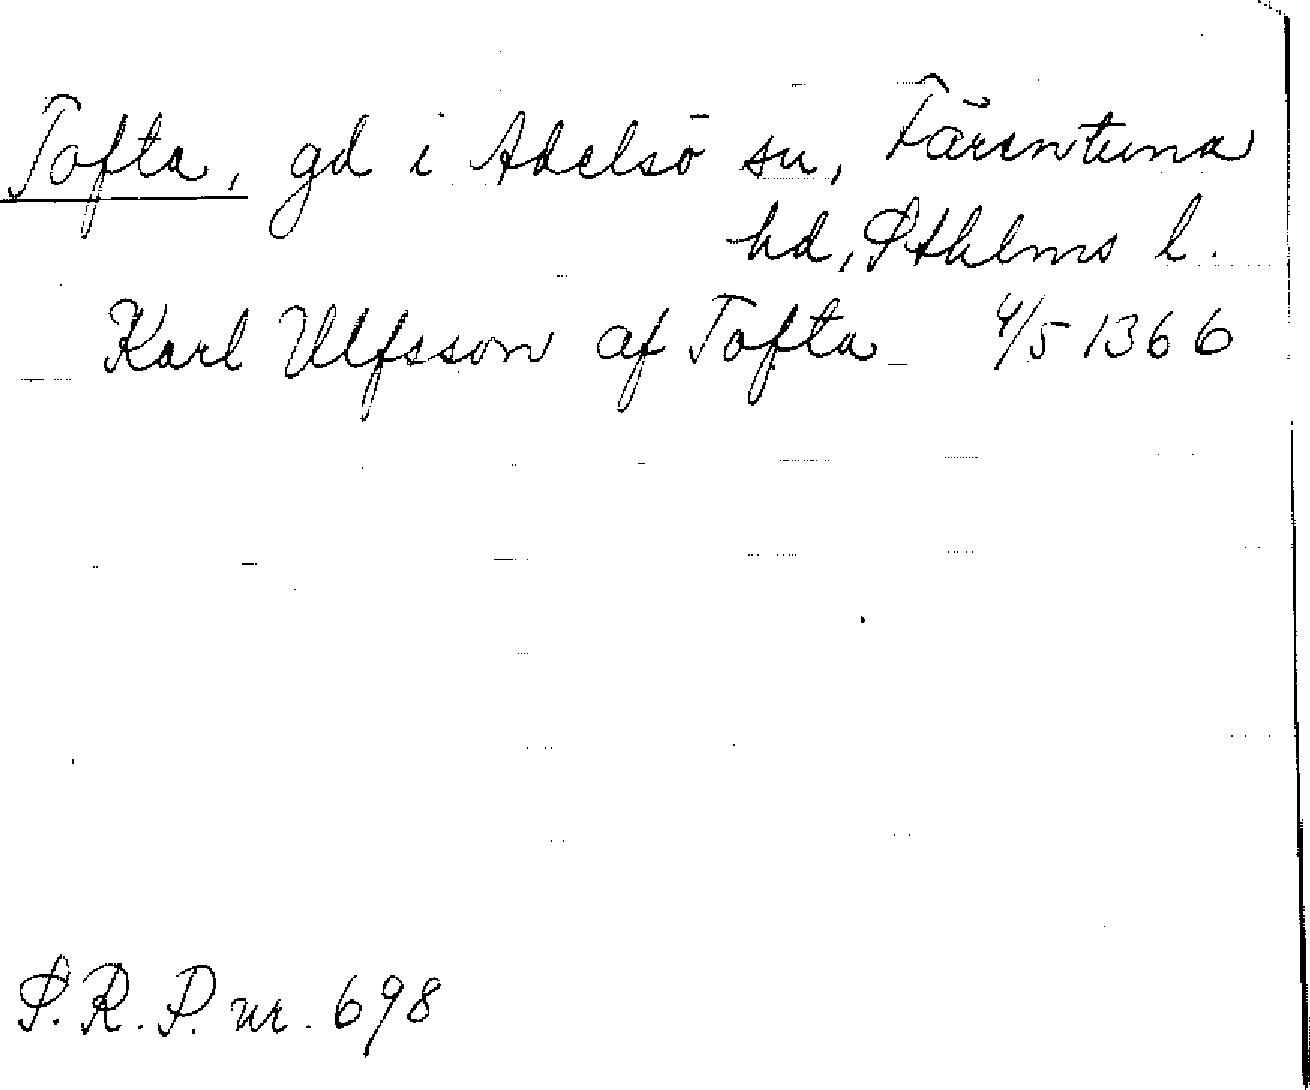 Tofta, gd i Adelsö sn, Färentuna
hd, Sthlms l.
Karl Ulfsson af Tofta 4/5 1366
S.R.P. nr. 698